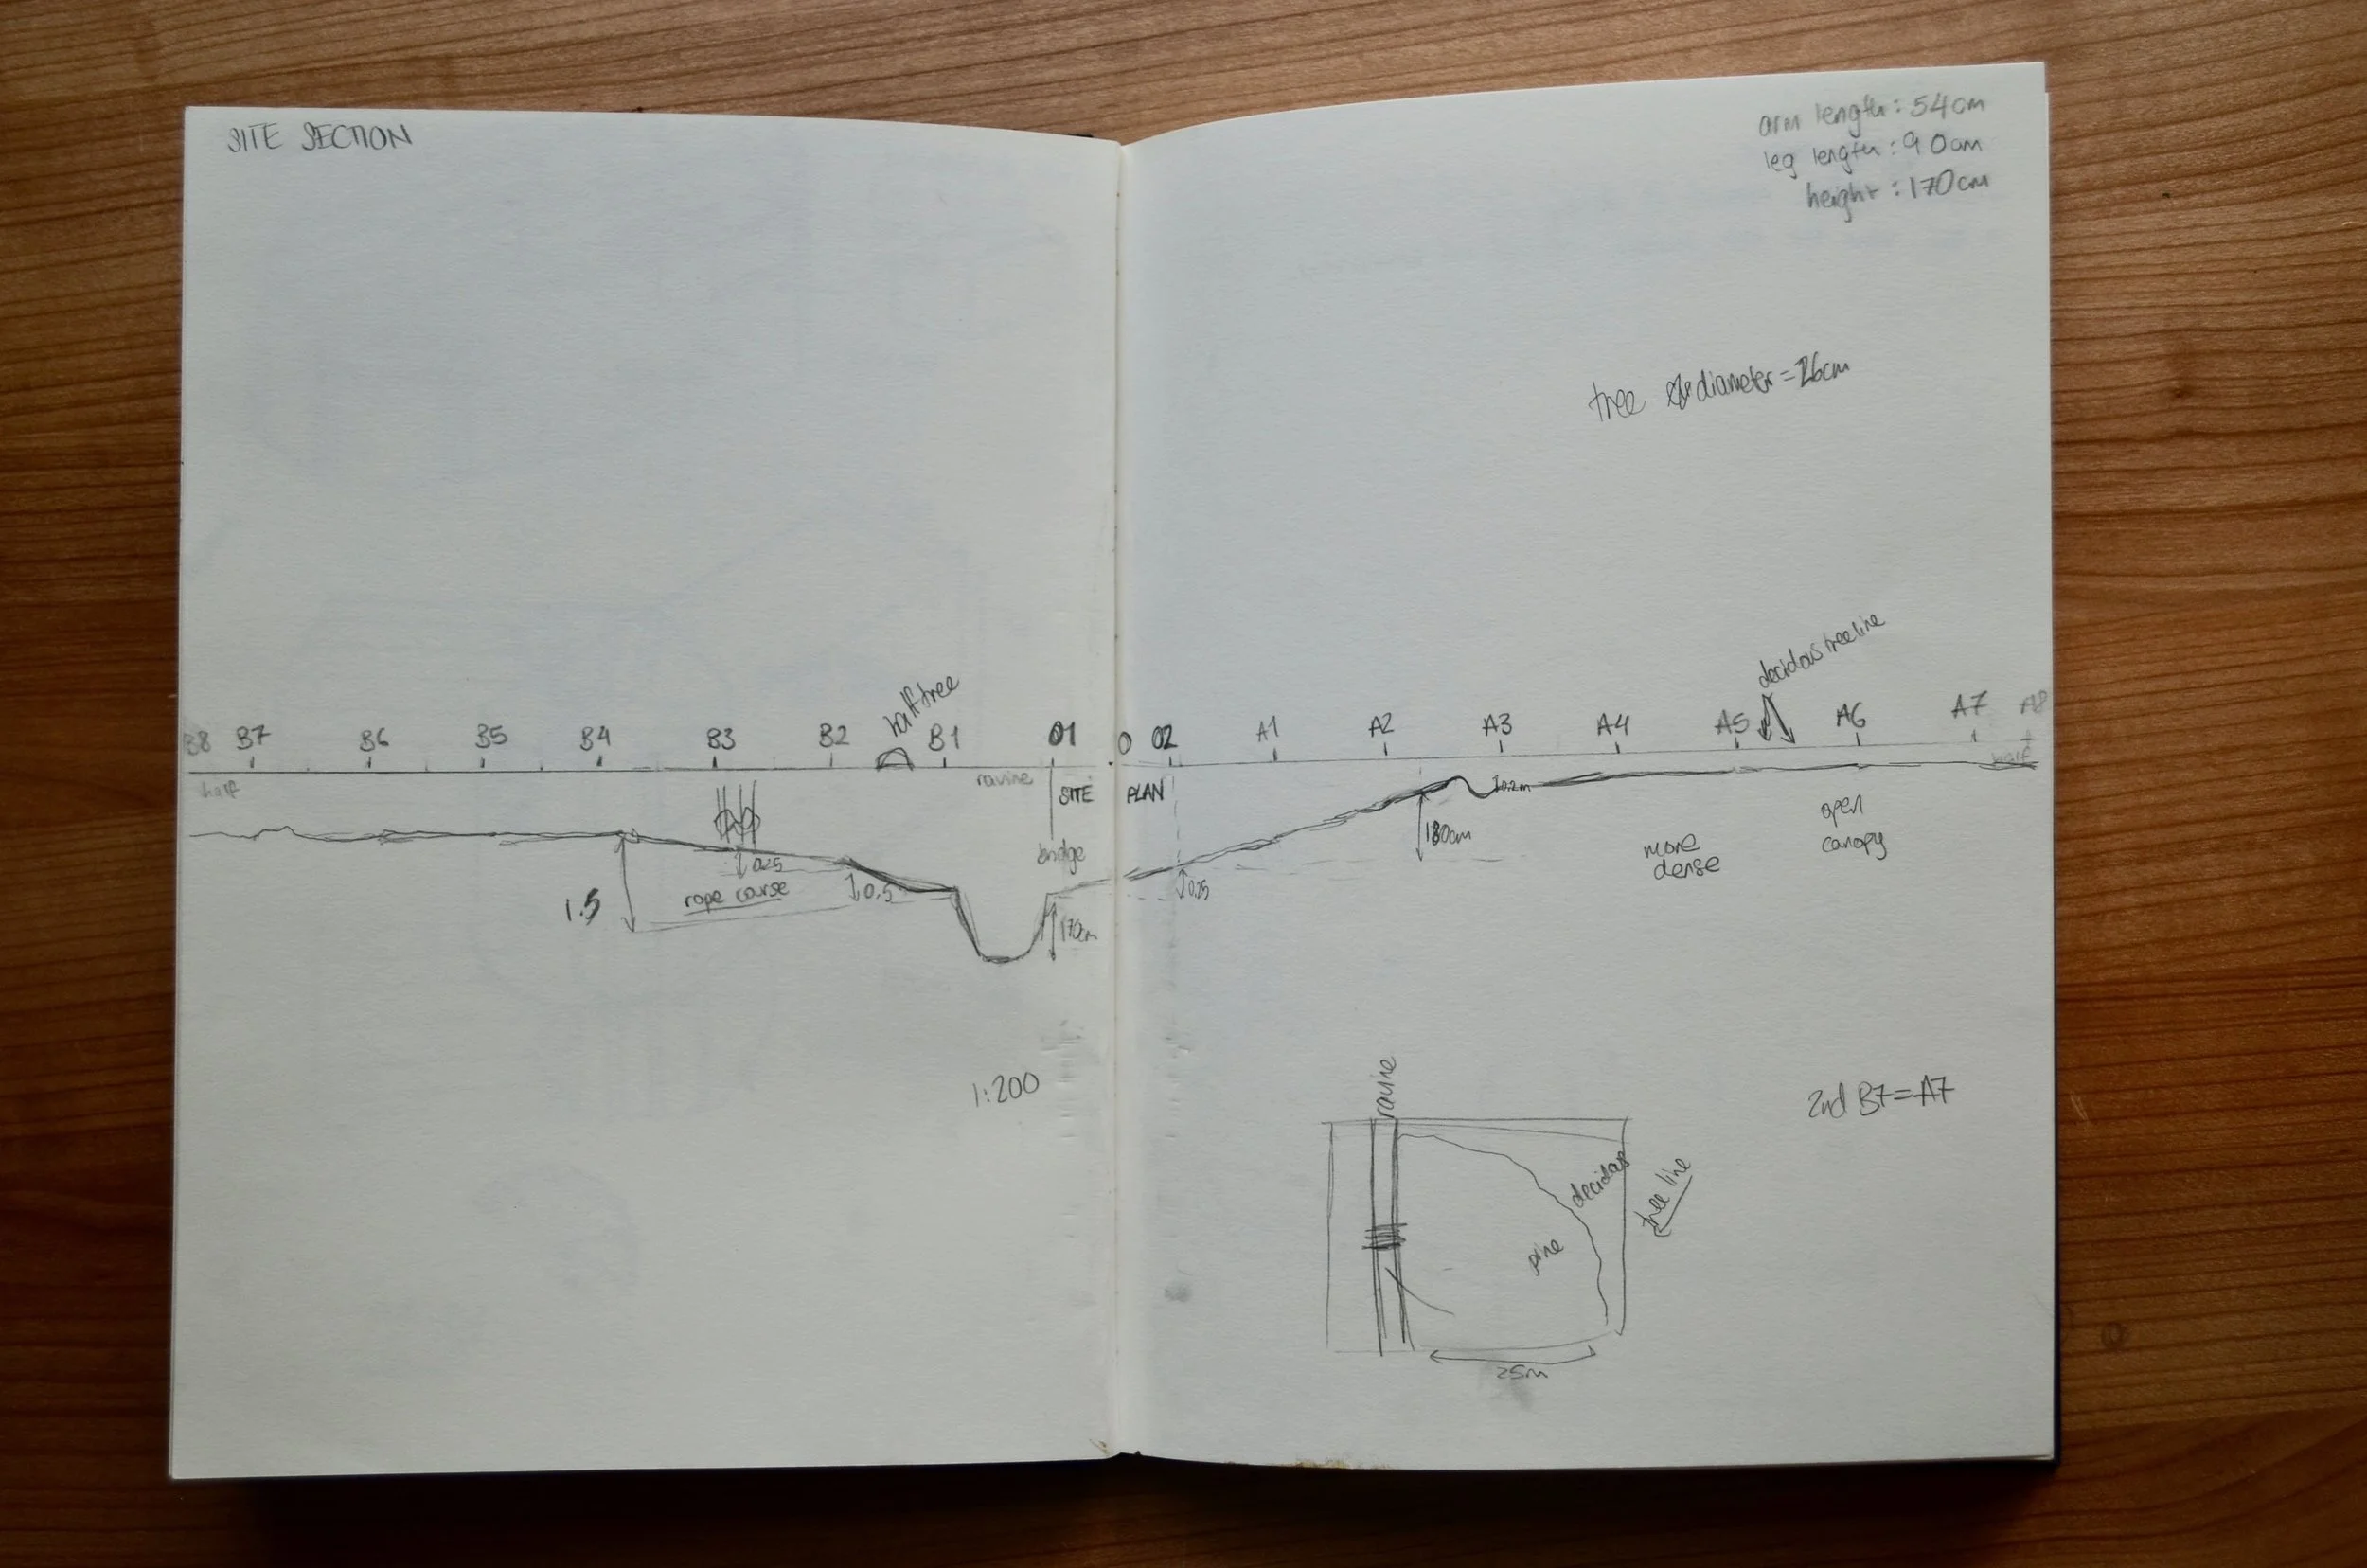 SITE SECTION
arm length : 54cm
leg length : 90cm
height : 170cm
tree diameter = 26cm
decidous treeline
half tree
B8 B7 B6 B5 B4 B3 B2 B1 01 0 02 A1 A2 A3 A4 A5 A6 A7 A8
half
ravine
SITE PLAN
half
0.2m
180cm
open
canopy
more
dense
bridge
0.25
rope course
1.5
0.5
0.25
170cm
1:200
ravine
2nd B7 = A7
decidous
tree line
pine
25m